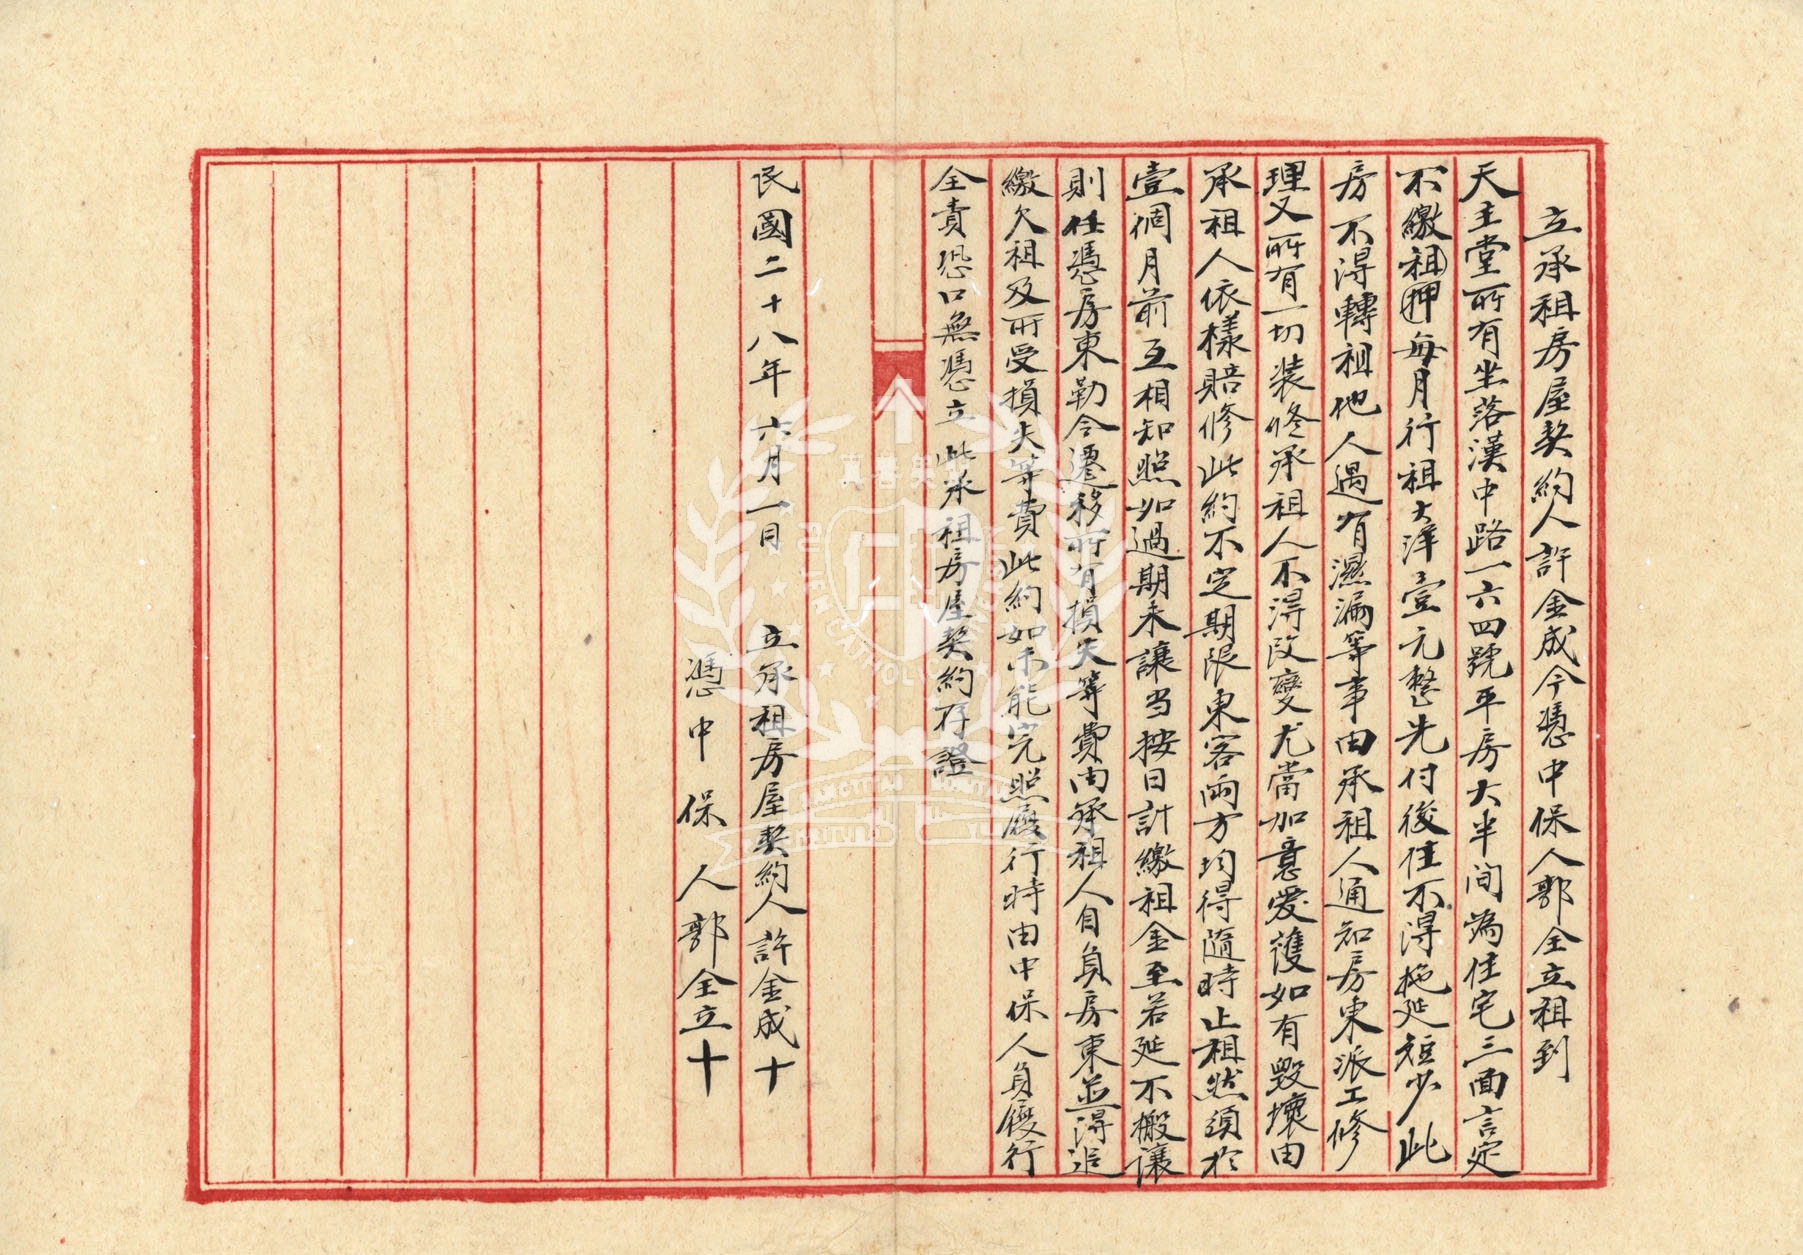 立承租房屋契約人許金成今憑中保人郭全立租到
天主堂所有坐落漢中路一六四號平房大半間為住宅三面言定
不繳租押每月行租大洋壹元整先付後住不得拖延短少此
房不得轉租他人遇有濕漏等事由承租人通知房東派工修
理又所有一切裝修承租人不得改變尤當加意愛護如有毀壞由
承租人依樣賠修此約不定期限東客兩方均得隨時止租然須於
壹個月前互相知照如過期未讓当按日計繳租金至若延不搬讓
則任憑房東勒令遷移所有損失等費由承租人自負房東並得追
繳欠租及所受損失等費此約如不能完照履行時由中保人負履行
全責恐口無憑立此承租房屋契約存證
民國二十八年六月一日 立承租房屋契約人許金成十
憑中保人郭全立十